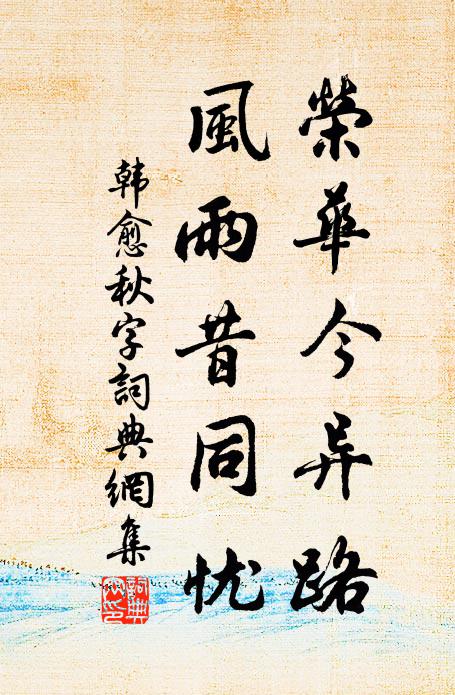 榮華今异路
風雨昔同忧
韩愈秋字詞典網集